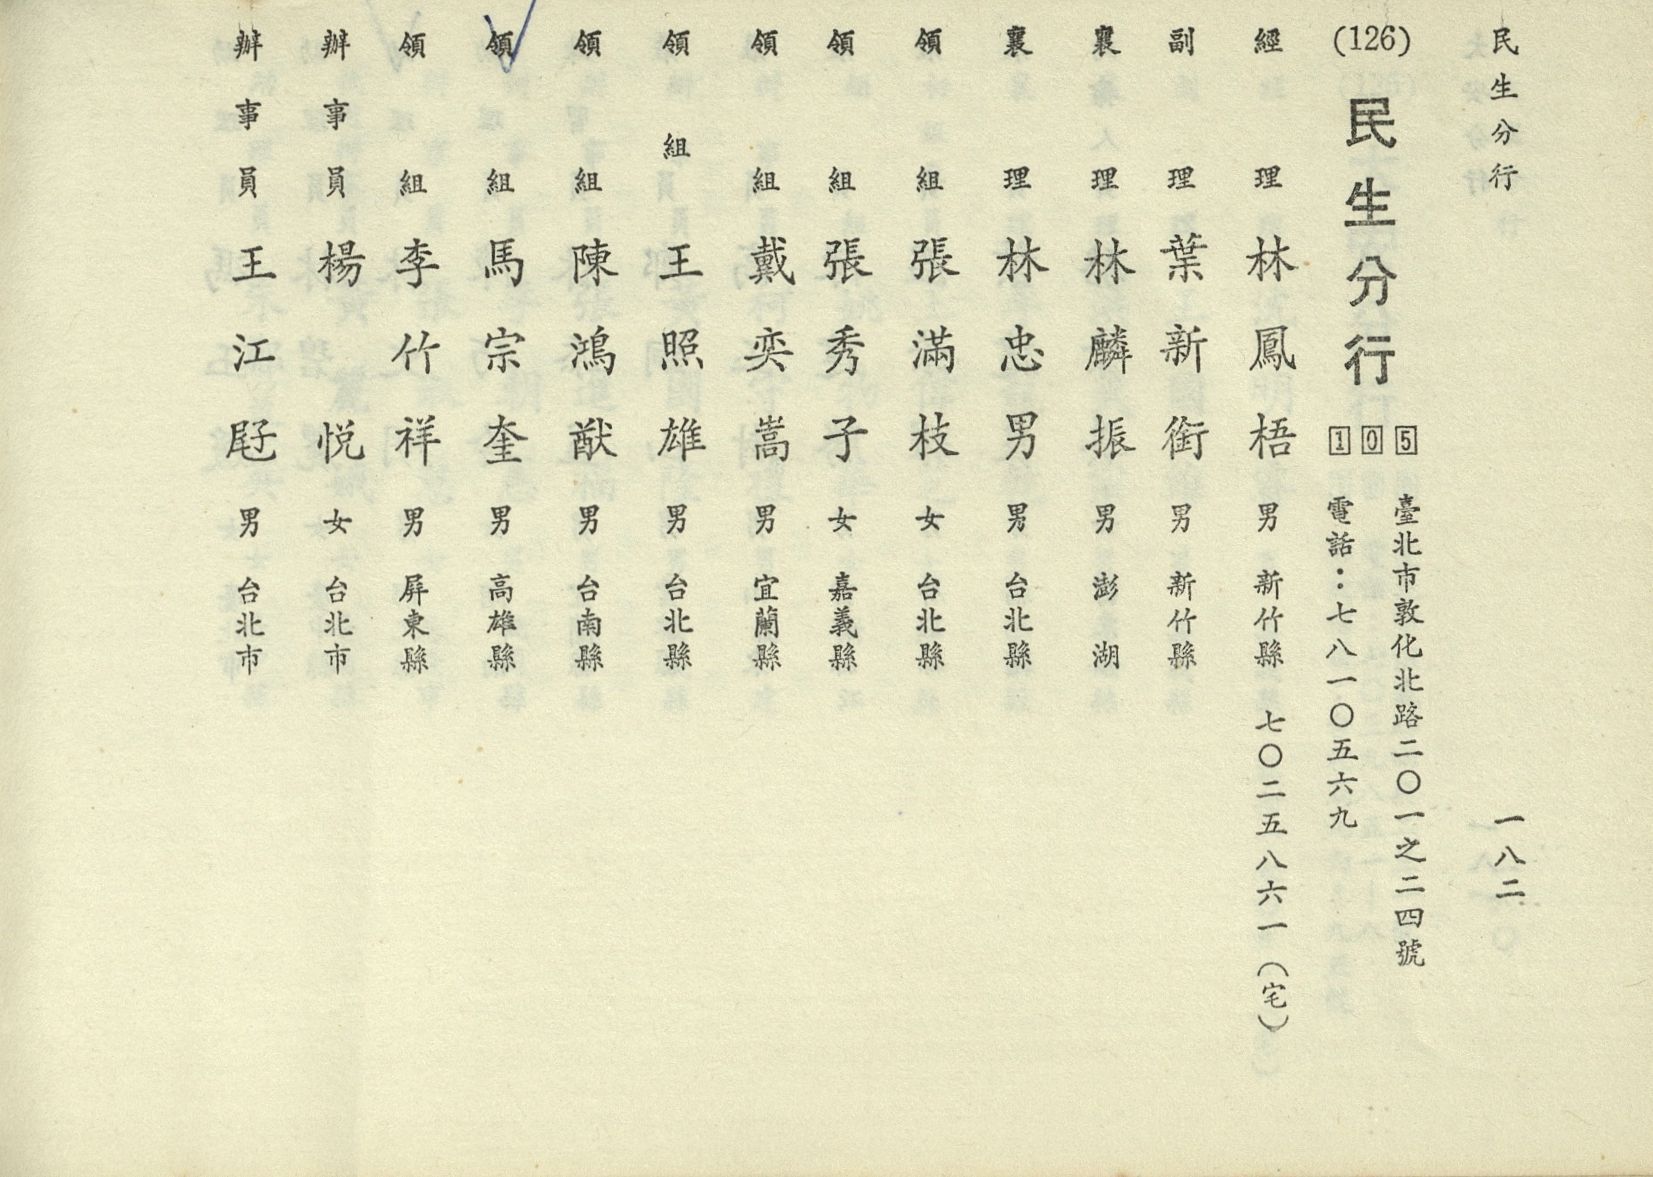 民生分行 一八二
(126) 民生分行 105 臺北市敦化北路二〇一之二四號
電話：七八一〇五六九
經理 林鳳梧 男 新竹縣 七〇二五八六一（宅）
副理 葉新銜 男 新竹縣
襄理 林麟振 男 澎湖
襄理 林忠男 男 台北縣
領組 張滿枝 女 台北縣
領組 張秀子 女 嘉義縣
領組 戴奕嵩 男 宜蘭縣
領組 王照雄 男 台北縣
領組 陳鴻猷 男 台南縣
領組 馬宗奎 男 高雄縣
領組 李竹祥 男 屏東縣
辦事員 楊悅 女 台北市
辦事員 王江 男 台北市